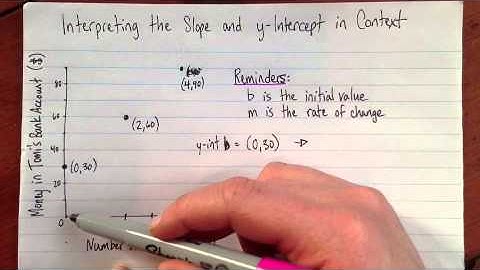 Interpreting the Slope and y-Intercept in Context
Money in Tomi's Bank Account ($)
80
60
40
20
0
(4,90)
(2,60)
(0,30)
Reminders:
b is the initial value
m is the rate of change
y-int b = (0,30) →
Number